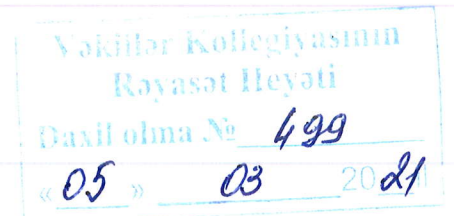 Vəkillər Kollegiyasının
Rəyasət Heyəti
Daxil olma № 499
« 05 » 03 2021